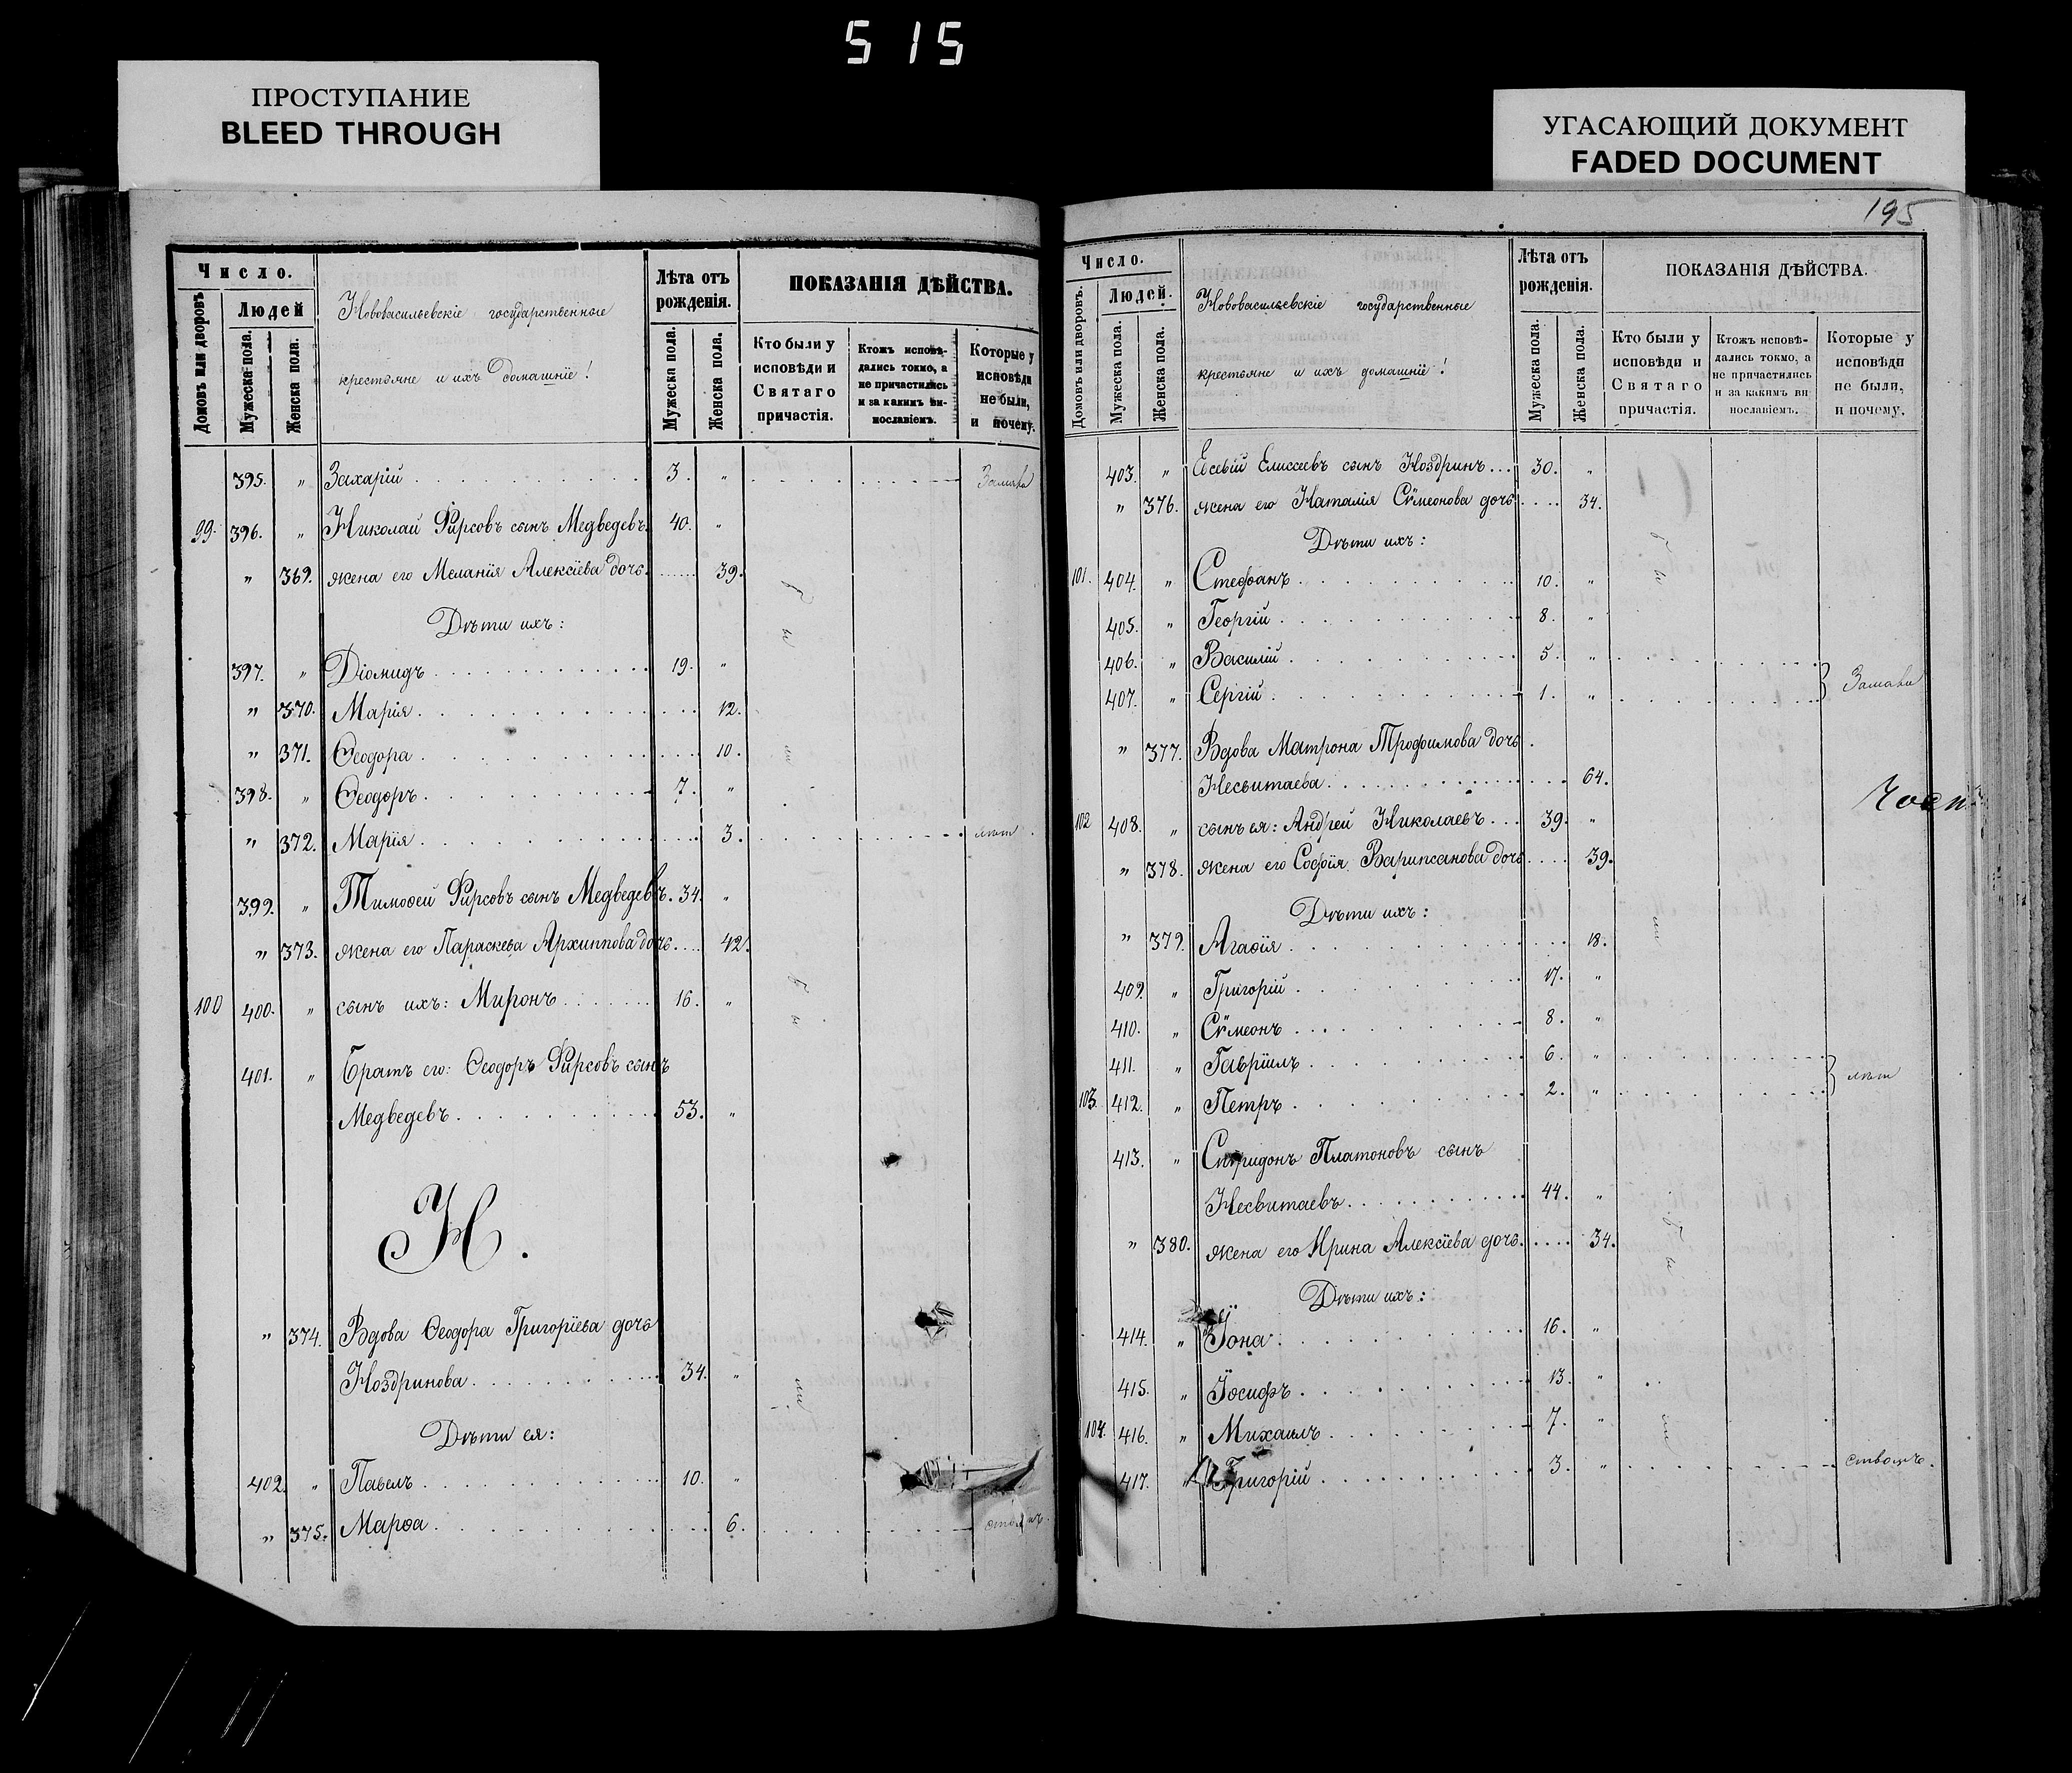 515
ПРОСТУПАНИЕ
BLEED THROUGH
УГАСАЮЩИЙ ДОКУМЕНТ
FADED DOCUMENT
Число.
Домовъ или дворовъ
Людей
Мужеска пола.
Женска пола.
Нововасильевскіе государственные
крестьяне и ихъ домашніе!
Лѣта отъ рожденія.
Мужеска пола.
Женска пола.
ПОКАЗАНІЯ ДѢЙСТВА.
Кто были у исповѣди и Святаго причастія.
Ктожъ исповѣдались токмо, а не причастились и за какимъ винословіемъ.
Которые у исповѣди не были, и почему.
395. " Захарій 3. " Замало
99. 396. " Николай Фирсовъ сынъ Медведевъ. 40. "
" 369. жена его Меланія Алексіева дочь. 39.
Дѣти ихъ:
397. " Діомидъ 19. "
" 370. Марія 12.
" 371. Ѳеодора 10.
398. " Ѳеодоръ 7. "
" 372. Марія 3. лѣт
399. " Тимоѳей Фирсовъ сынъ Медведевъ. 34. "
" 373. жена его Параскева Архиппова дочь 42.
100 400. " сынъ ихъ: Миронъ 16. "
401. " Братъ его: Ѳеодоръ Фирсовъ сынъ
Медведевъ 53. "
Н.
" 374. Вдова Ѳеодора Григоріева дочь
Ноздринова 34. "
Дѣти ея:
402. " Павелъ 10. "
" 375. Марѳа 6.
195
Число.
Домовъ или дворовъ.
Людей.
Мужеска пола.
Женска пола.
Нововасильевскіе государственные
крестьяне и ихъ домашніе!
Лѣта отъ рожденія.
Мужеска пола.
Женска пола.
ПОКАЗАНІЯ ДѢЙСТВА.
Кто были у исповѣди и Святаго причастія.
Ктожъ исповѣдались токмо, а не причастились и за какимъ винословіемъ.
Которые у исповѣди не были, и почему.
403. " Евсевій Елиссеевъ сынъ Ноздринъ 30. "
" 376. жена его Наталія Сѵмеонова дочь 34.
Дѣти ихъ:
101. 404. " Стефанъ 10. "
405. " Георгій 8. "
406. " Василій 5. "
407. " Сергій 1. " Замало
" 377. Вдова Матрона Трофимова дочь
Несвитаева 64.
102 408. " сынъ ея: Андрей Николаевъ 39. "
" 378. жена его Софія дочь 39.
Дѣти ихъ:
" 379. Агаѳія 18.
409. " Григорій 17. "
410. " Сѵмеонъ 8. "
411. " Гавріилъ 6. "
103. 412. " Петръ 2. " лѣт
413. " Спиридонъ Платоновъ сынъ
Несвитаевъ 44. "
" 380. жена его Ирина Алексіева дочь. 34.
Дѣти ихъ:
414. " Іона 16. "
415. " Іосифъ 13. "
104. 416. " Михаилъ 7. "
417. " Григорій 3. " ствомъ.